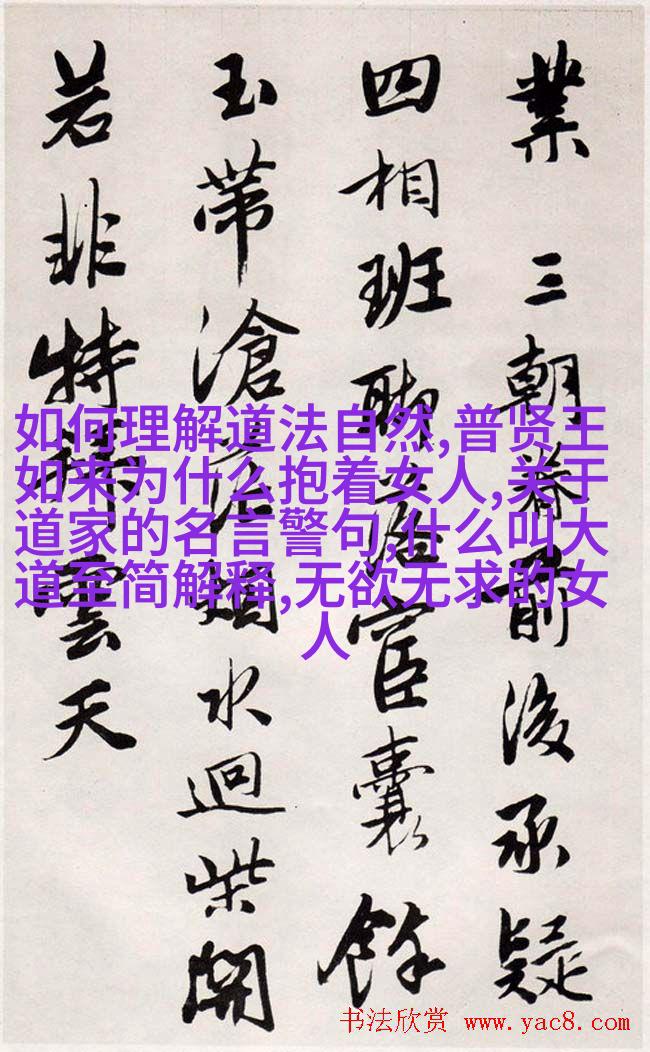 業 三朝眷前後承疑
四相班聯宦囊餘
玉帶滄茫烟水迴柴開
若非特掃雲天
如何理解道法自然,普贤王
如来为什么抱着女人,关于
道家的名言警句,什么叫大
道至简解释,无欲无求的女
人
书法欣赏 www.yac8.com